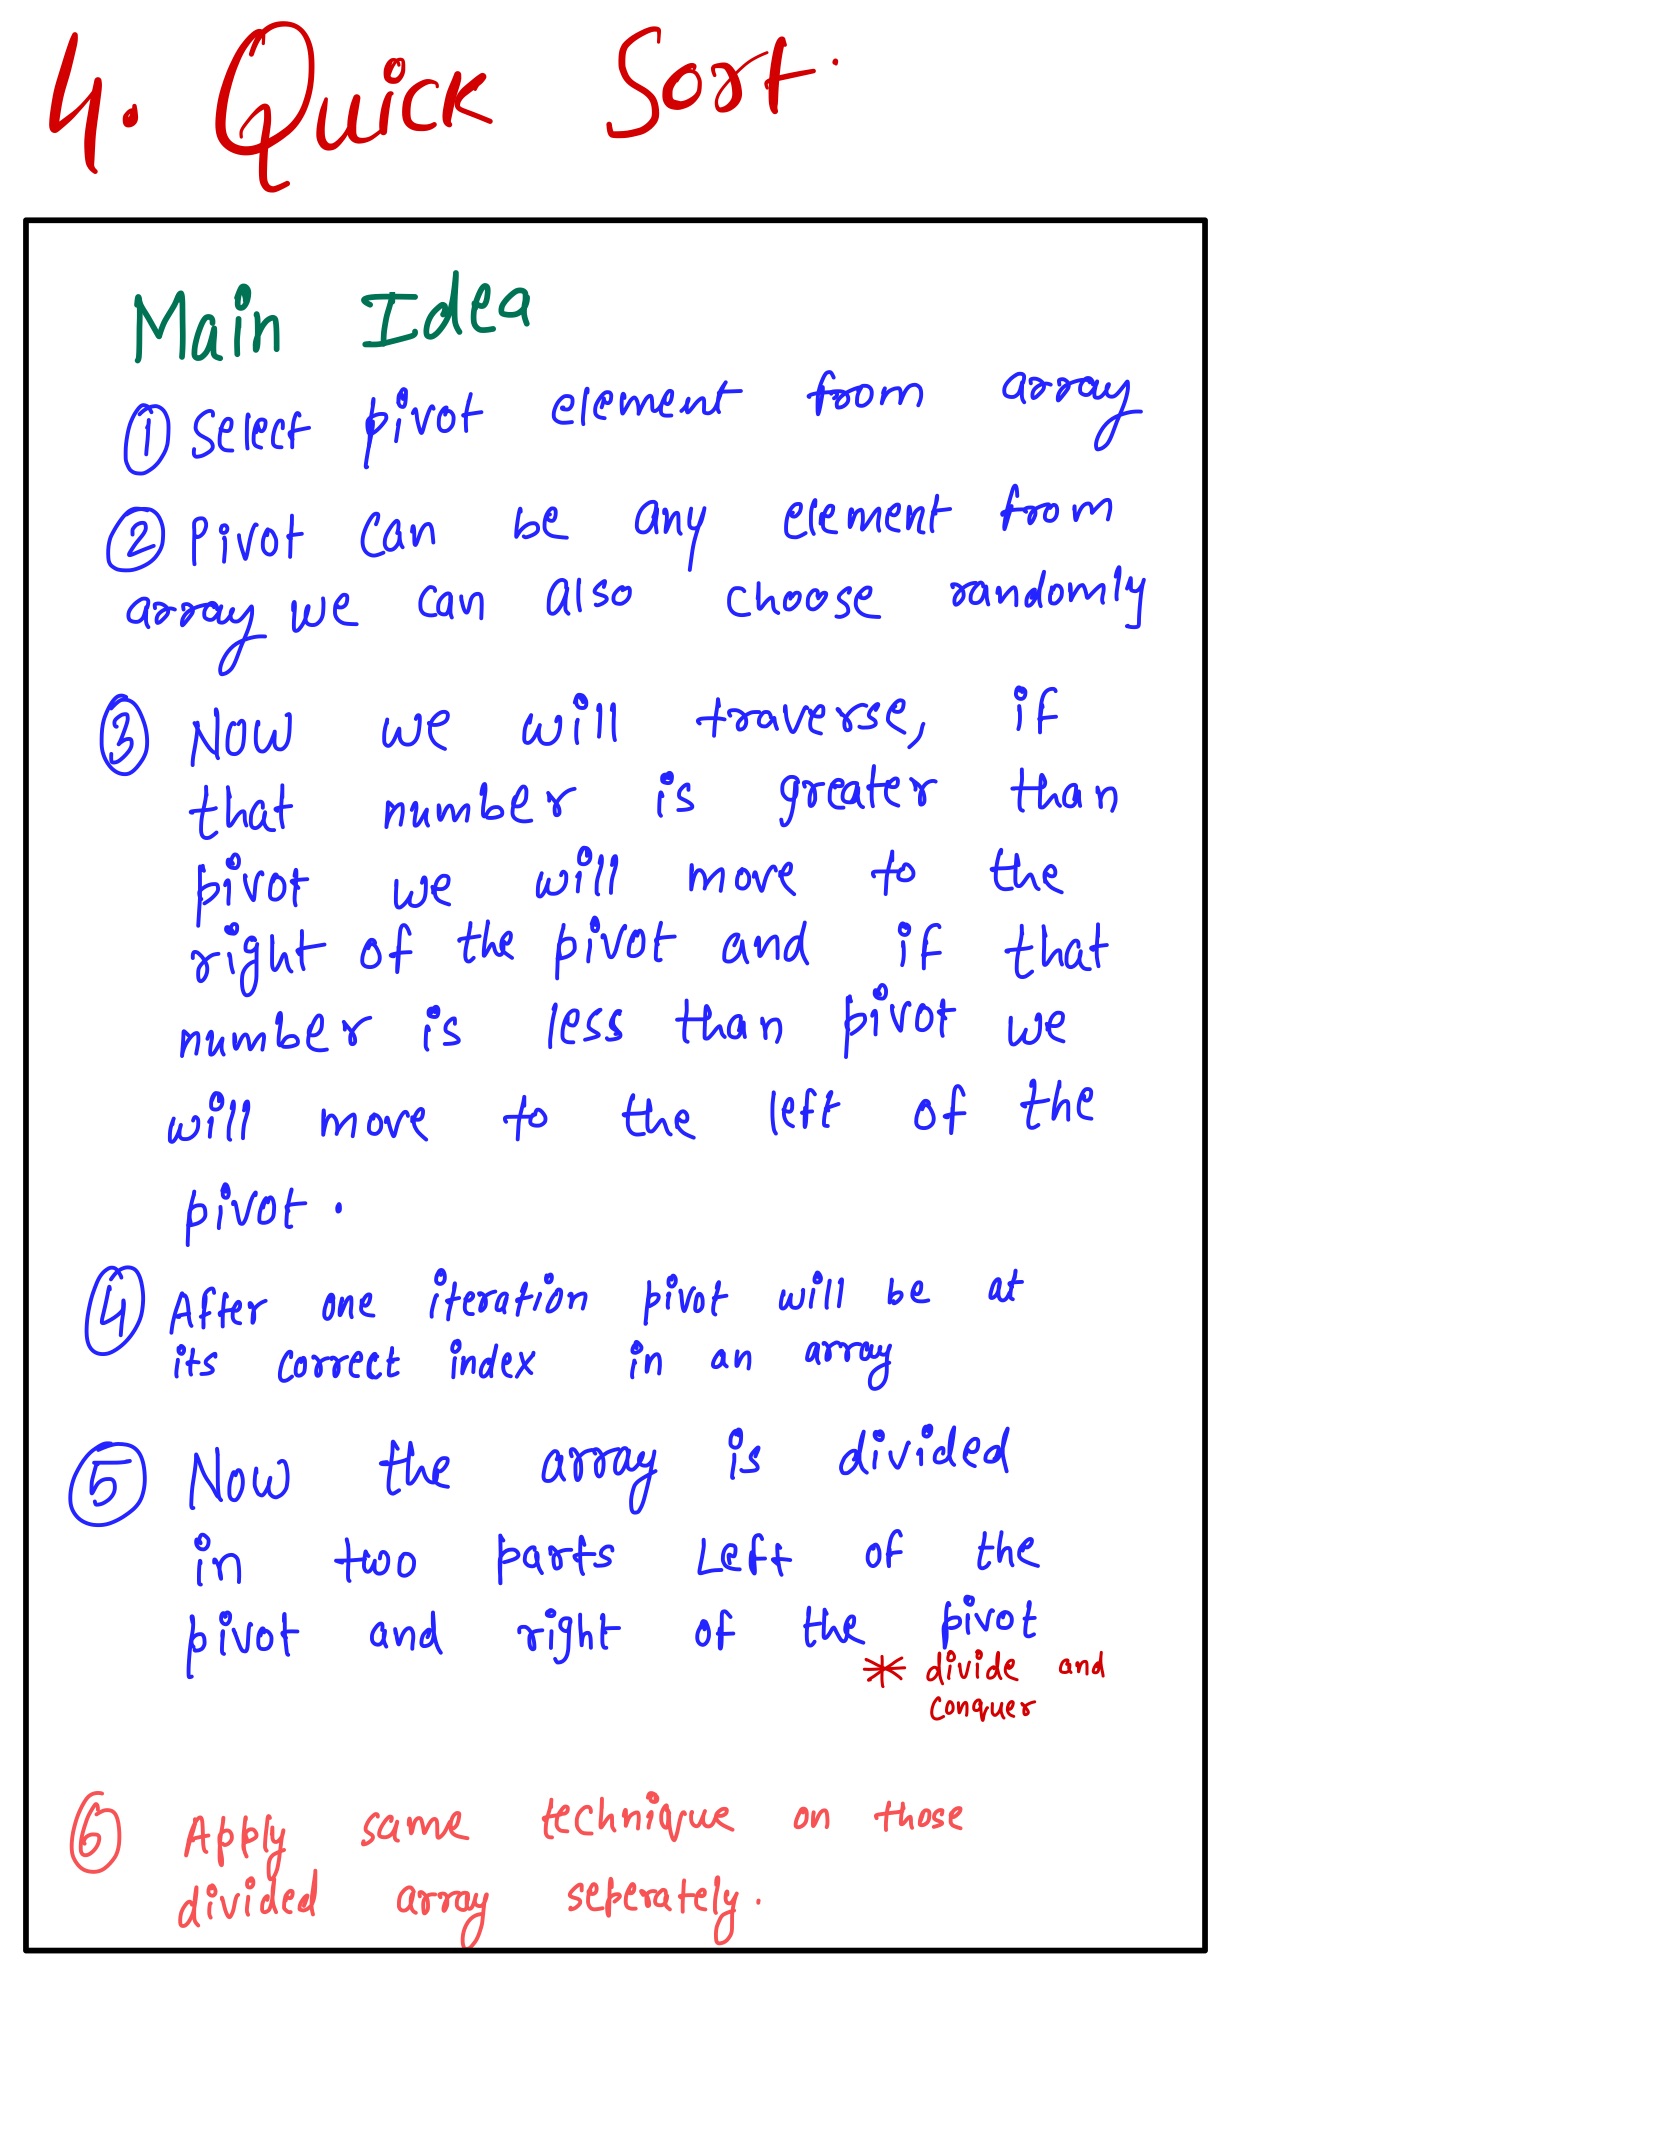 4. Quick Sort.
Main Idea
① Select pivot element from array
② Pivot can be any element from
array we can also choose randomly
③ Now we will traverse, if
that number is greater than
pivot we will move to the
right of the pivot and if that
number is less than pivot we
will move to the left of the
pivot.
④ After one iteration pivot will be at
its correct index in an array
⑤ Now the array is divided
in two parts Left of the
pivot and right of the pivot
* divide and
conquer
⑥ Apply same technique on those
divided array seperately.